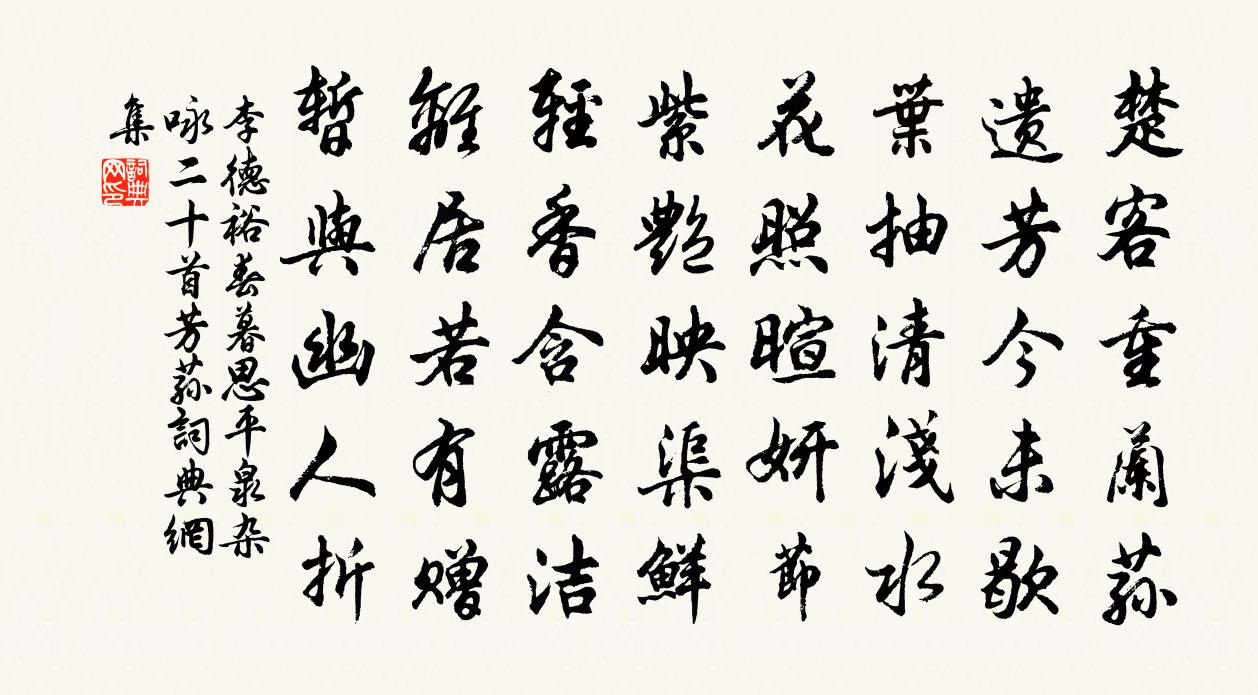 楚客重蘭荪
遗芳今未歇
葉抽清淺水
花照暄妍節
紫艷映渠鮮
輕香含露洁
離居若有赠
暫與幽人折
李德裕春暮思平泉杂
咏二十首芳荪詞典網
集
詞典
网印